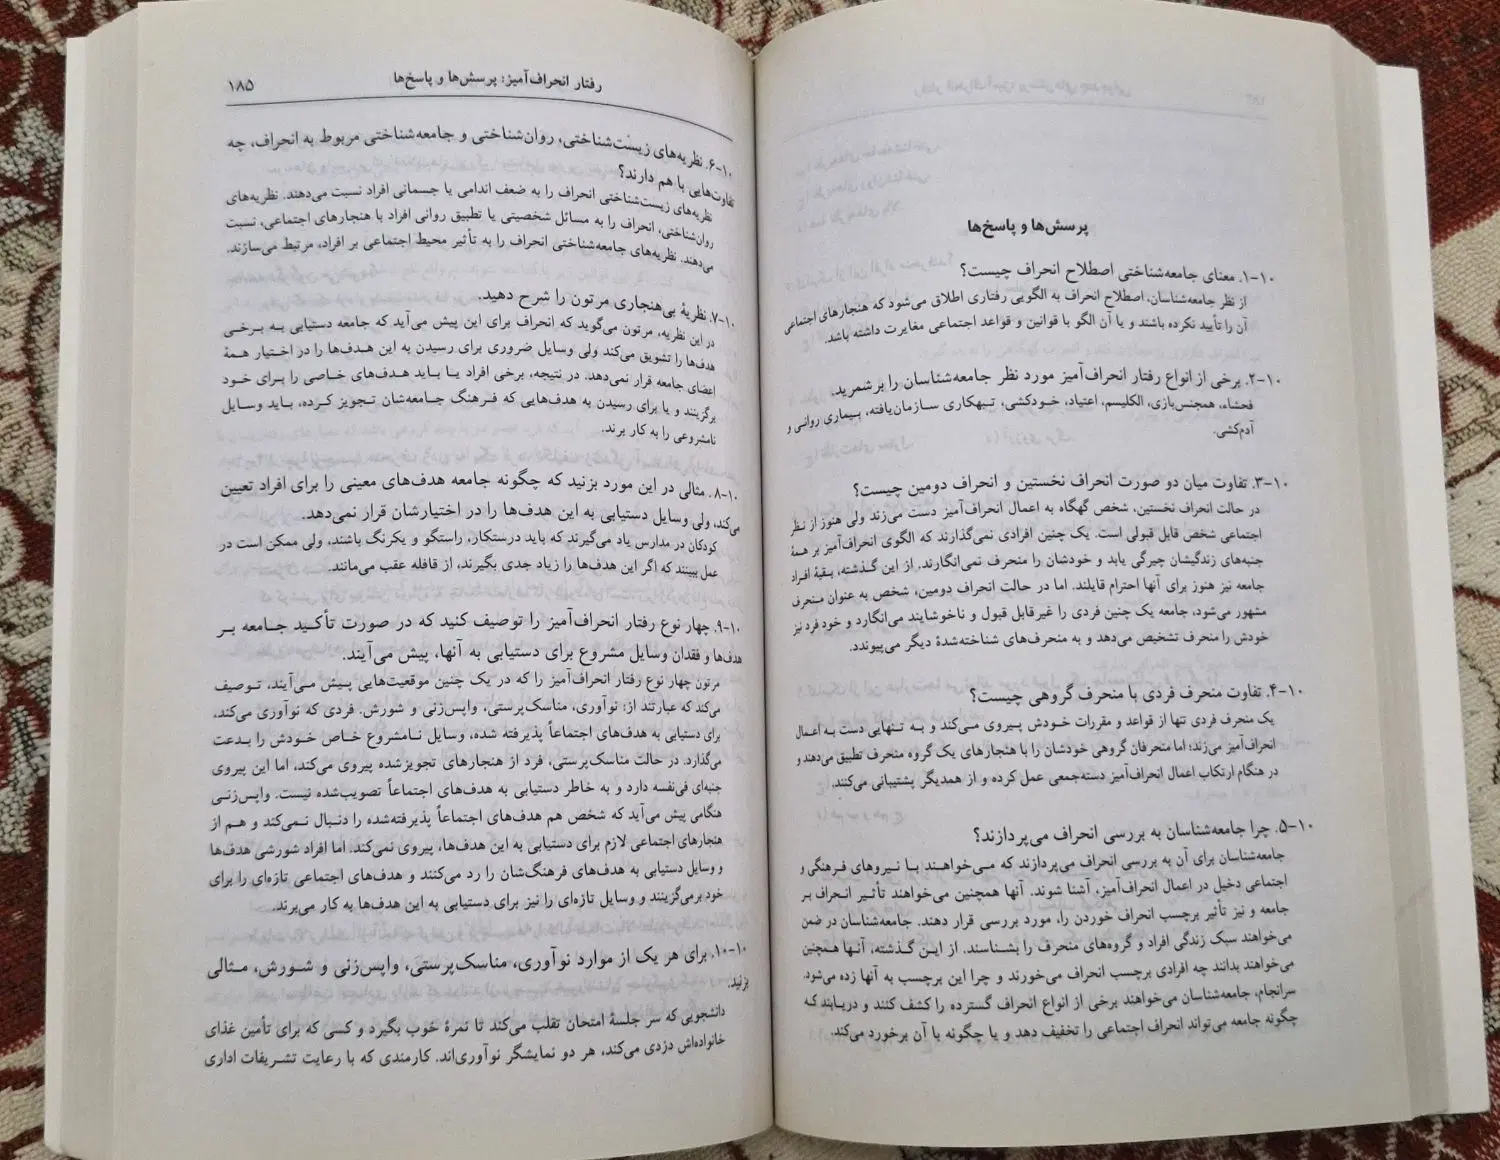 پرسش‌ها و پاسخ‌ها
۱۰-۱. معنای جامعه‌شناختی اصطلاح انحراف چیست؟
از نظر جامعه‌شناسان، اصطلاح انحراف به الگویی رفتاری اطلاق می‌شود که هنجارهای اجتماعی
آن را تأیید نکرده باشند و یا آن الگو با قوانین و قواعد اجتماعی مغایرت داشته باشد.
۱۰-۲. برخی از انواع رفتار انحراف‌آمیز مورد نظر جامعه‌شناسان را برشمرید.
فحشاء، همجنس‌بازی، الکلیسم، اعتیاد، خودکشی، تبهکاری سازمان‌یافته، بیماری روانی و
آدم‌کشی.
۱۰-۳. تفاوت میان دو صورت انحراف نخستین و انحراف دومین چیست؟
در حالت انحراف نخستین، شخص گهگاه به اعمال انحراف‌آمیز دست می‌زند ولی هنوز از نظر
اجتماعی شخص قابل قبولی است. یک چنین افرادی نمی‌گذارند که الگوی انحراف‌آمیز بر همهٔ
جنبه‌های زندگیشان چیرگی یابد و خودشان را منحرف نمی‌انگارند. از این گذشته، بقیهٔ افراد
جامعه نیز هنوز برای آنها احترام قایلند. اما در حالت انحراف دومین، شخص به عنوان منحرف
مشهور می‌شود، جامعه یک چنین فردی را غیرقابل قبول و ناخوشایند می‌انگارد و خود فرد نیز
خودش را منحرف تشخیص می‌دهد و به منحرف‌های شناخته‌شدهٔ دیگر می‌پیوندد.
۱۰-۴. تفاوت منحرف فردی با منحرف گروهی چیست؟
یک منحرف فردی تنها از قواعد و مقررات خودش پیروی می‌کند و به تنهایی دست به اعمال
انحراف‌آمیز می‌زند؛ اما منحرفان گروهی خودشان را با هنجارهای یک گروه منحرف تطبیق می‌دهند و
در هنگام ارتکاب اعمال انحراف‌آمیز دسته‌جمعی عمل کرده و از همدیگر پشتیبانی می‌کنند.
۱۰-۵. چرا جامعه‌شناسان به بررسی انحراف می‌پردازند؟
جامعه‌شناسان برای آن به بررسی انحراف می‌پردازند که می‌خواهند با نیروهای فرهنگی و
اجتماعی دخیل در اعمال انحراف‌آمیز، آشنا شوند. آنها همچنین می‌خواهند تأثیر انحراف بر
جامعه و نیز تأثیر برچسب انحراف خوردن را، مورد بررسی قرار دهند. جامعه‌شناسان در ضمن
می‌خواهند سبک زندگی افراد و گروه‌های منحرف را بشناسند. از این گذشته، آنها همچنین
می‌خواهند بدانند چه افرادی برچسب انحراف می‌خورند و چرا این برچسب به آنها زده می‌شود.
سرانجام، جامعه‌شناسان می‌خواهند برخی از انواع انحراف گسترده را کشف کنند و دریابند که
چگونه جامعه می‌تواند انحراف اجتماعی را تخفیف دهد و یا چگونه با آن برخورد می‌کند.
رفتار انحراف‌آمیز: پرسش‌ها و پاسخ‌ها ۱۸۵
۱۰-۶. نظریه‌های زیست‌شناختی، روان‌شناختی و جامعه‌شناختی مربوط به انحراف، چه
تفاوت‌هایی با هم دارند؟
نظریه‌های زیست‌شناختی انحراف را به ضعف اندامی یا جسمانی افراد نسبت می‌دهند. نظریه‌های
روان‌شناختی، انحراف را به مسائل شخصیتی یا تطبیق روانی افراد با هنجارهای اجتماعی، نسبت
می‌دهند. نظریه‌های جامعه‌شناختی انحراف را به تأثیر محیط اجتماعی بر افراد، مرتبط می‌سازند.
۱۰-۷. نظریهٔ بی‌هنجاری مرتون را شرح دهید.
در این نظریه، مرتون می‌گوید که انحراف برای این پیش می‌آید که جامعه دستیابی به برخی
هدف‌ها را تشویق می‌کند ولی وسایل ضروری برای رسیدن به این هدف‌ها را در اختیار همهٔ
اعضای جامعه قرار نمی‌دهد. در نتیجه، برخی افراد یا باید هدف‌های خاصی را برای خود
برگزینند و یا برای رسیدن به هدف‌هایی که فرهنگ جامعه‌شان تجویز کرده، باید وسایل
نامشروعی را به کار برند.
۱۰-۸. مثالی در این مورد بزنید که چگونه جامعه هدف‌های معینی را برای افراد تعیین
می‌کند، ولی وسایل دستیابی به این هدف‌ها را در اختیارشان قرار نمی‌دهد.
کودکان در مدارس یاد می‌گیرند که باید درستکار، راستگو و یکرنگ باشند، ولی ممکن است در
عمل ببینند که اگر این هدف‌ها را زیاد جدی بگیرند، از قافله عقب می‌مانند.
۱۰-۹. چهار نوع رفتار انحراف‌آمیز را توصیف کنید که در صورت تأکید جامعه بر
هدف‌ها و فقدان وسایل مشروع برای دستیابی به آنها، پیش می‌آیند.
مرتون چهار نوع رفتار انحراف‌آمیز را که در یک چنین موقعیت‌هایی پیش می‌آیند، توصیف
می‌کند که عبارتند از: نوآوری، مناسک‌پرستی، واپس‌زنی و شورش. فردی که نوآوری می‌کند،
برای دستیابی به هدف‌های اجتماعاً پذیرفته شده، وسایل نامشروع خاص خودش را بدعت
می‌گذارد. در حالت مناسک‌پرستی، فرد از هنجارهای تجویزشده پیروی می‌کند، اما این پیروی
جنبه‌ای فی‌نفسه دارد و به خاطر دستیابی به هدف‌های اجتماعاً تصویب‌شده نیست. واپس‌زنی
هنگامی پیش می‌آید که شخص هم هدف‌های اجتماعاً پذیرفته‌شده را دنبال نمی‌کند و هم از
هنجارهای اجتماعی لازم برای دستیابی به این هدف‌ها، پیروی نمی‌کند. اما افراد شورشی هدف‌ها
و وسایل دستیابی به هدف‌های فرهنگ‌شان را رد می‌کنند و هدف‌های اجتماعی تازه‌ای را برای
خود برمی‌گزینند و وسایل تازه‌ای را نیز برای دستیابی به این هدف‌ها به کار می‌برند.
۱۰-۱۰. برای هر یک از موارد نوآوری، مناسک‌پرستی، واپس‌زنی و شورش، مثالی
بزنید.
دانشجویی که سر جلسهٔ امتحان تقلب می‌کند تا نمرهٔ خوب بگیرد و کسی که برای تأمین غذای
خانواده‌اش دزدی می‌کند، هر دو نمایشگر نوآوری‌اند. کارمندی که با رعایت تشریفات اداری